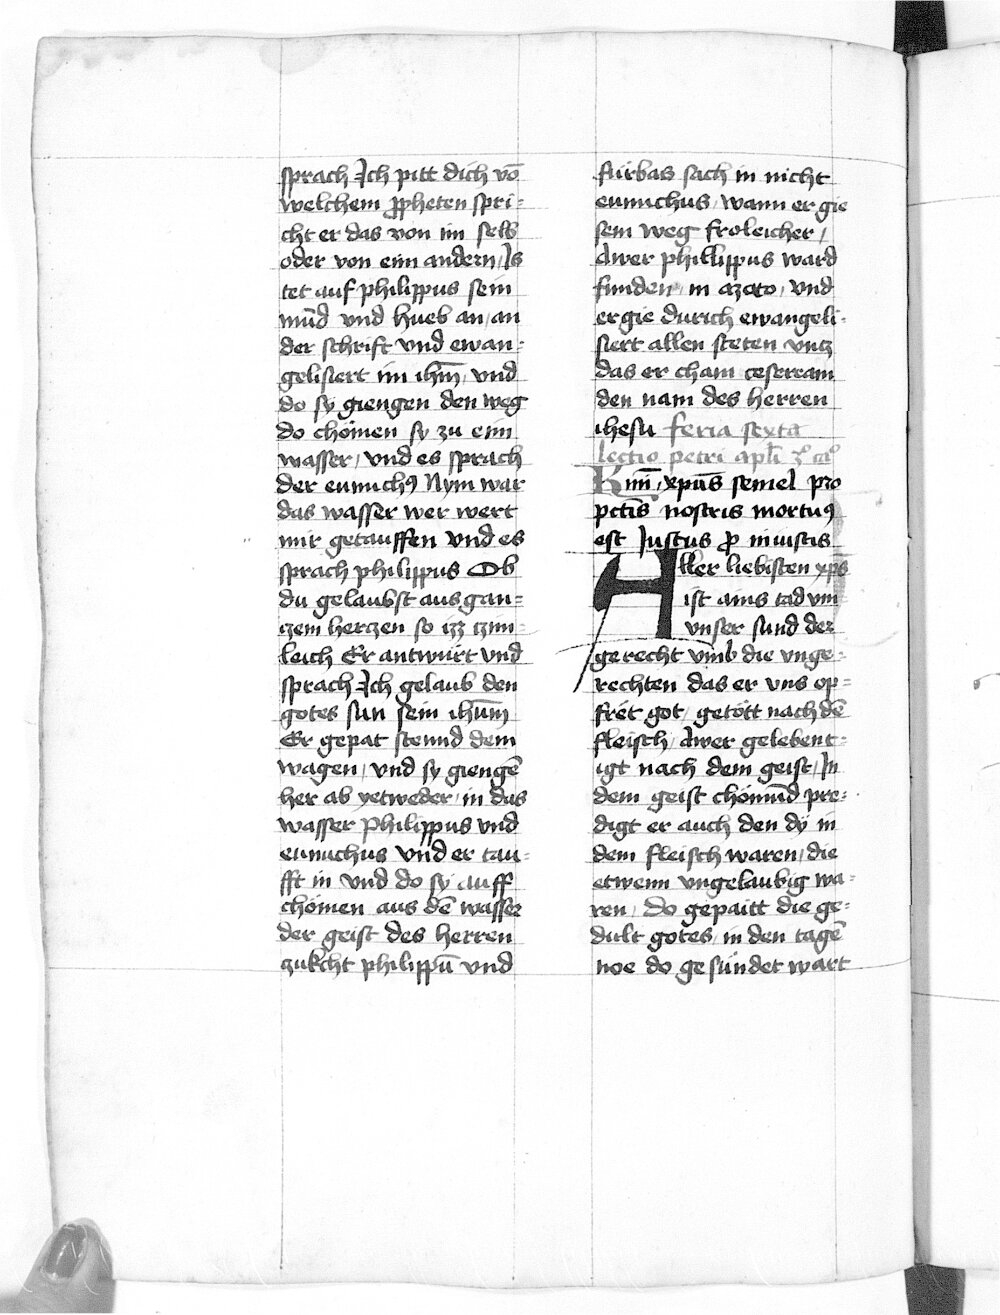 sprach Ich pitt dich vō
welchem ꝓpheten spri⸗
cht er das von im selb
oder von eim andern / Is
tet auf philippus sein
mūd vnd hueb an / an
der schrift vnd ewan⸗
gelisiert im ihm̄ / vnd
do sy giengen den weg
do chömen sy zu eim
wasser / vnd es sprach
der eunuchꝰ Nym war
das wasser wer wert
mir getauffen vnd es
sprach philippus Ob
du gelaubst aus gan⸗
czem herczen so izz czim⸗
leich Er antwürt vnd
sprach Ich gelaub den
gotes sun sein ihūm
Er gepat stennd dem
wagen / vnd sy giengē
her ab yetweder / in das
wasser Philippus vnd
eunuchus vnd er tau⸗
fft in vnd do sy auff
chömen aus dē wasser
der geist des herren
zukcht philippū vnd
fürbas sach in nicht
eunuchus / wann er gie
sein weg froleicher /
Awer phillippus ward
funden / in azoto / vnd
er gie durich ewangeli⸗
siert allen steten vntz
das er cham cesercam
den nam des herren
ihesu feria sexta
lectio petri apłi
Kmī / xpūs semel pro
pctīs nostris mortuꝰ
est Justus ꝓ iniustis
Aller liebisten xp̄s
ist ains tad vm
vnser sund der
gerecht vmb die vnge⸗
rechten das er vns op⸗
frét got / getött nach dē
fleisch / Awer gelebent⸗
igt nach dem geist / In
dem geist chömūd pre⸗
digt er auch den dÿ in
dem fleisch waren / die
etwenn vngelaubig wa⸗
ren / do gepaitt die ge⸗
dult gotes / in den tagē
noe do gesündet wart